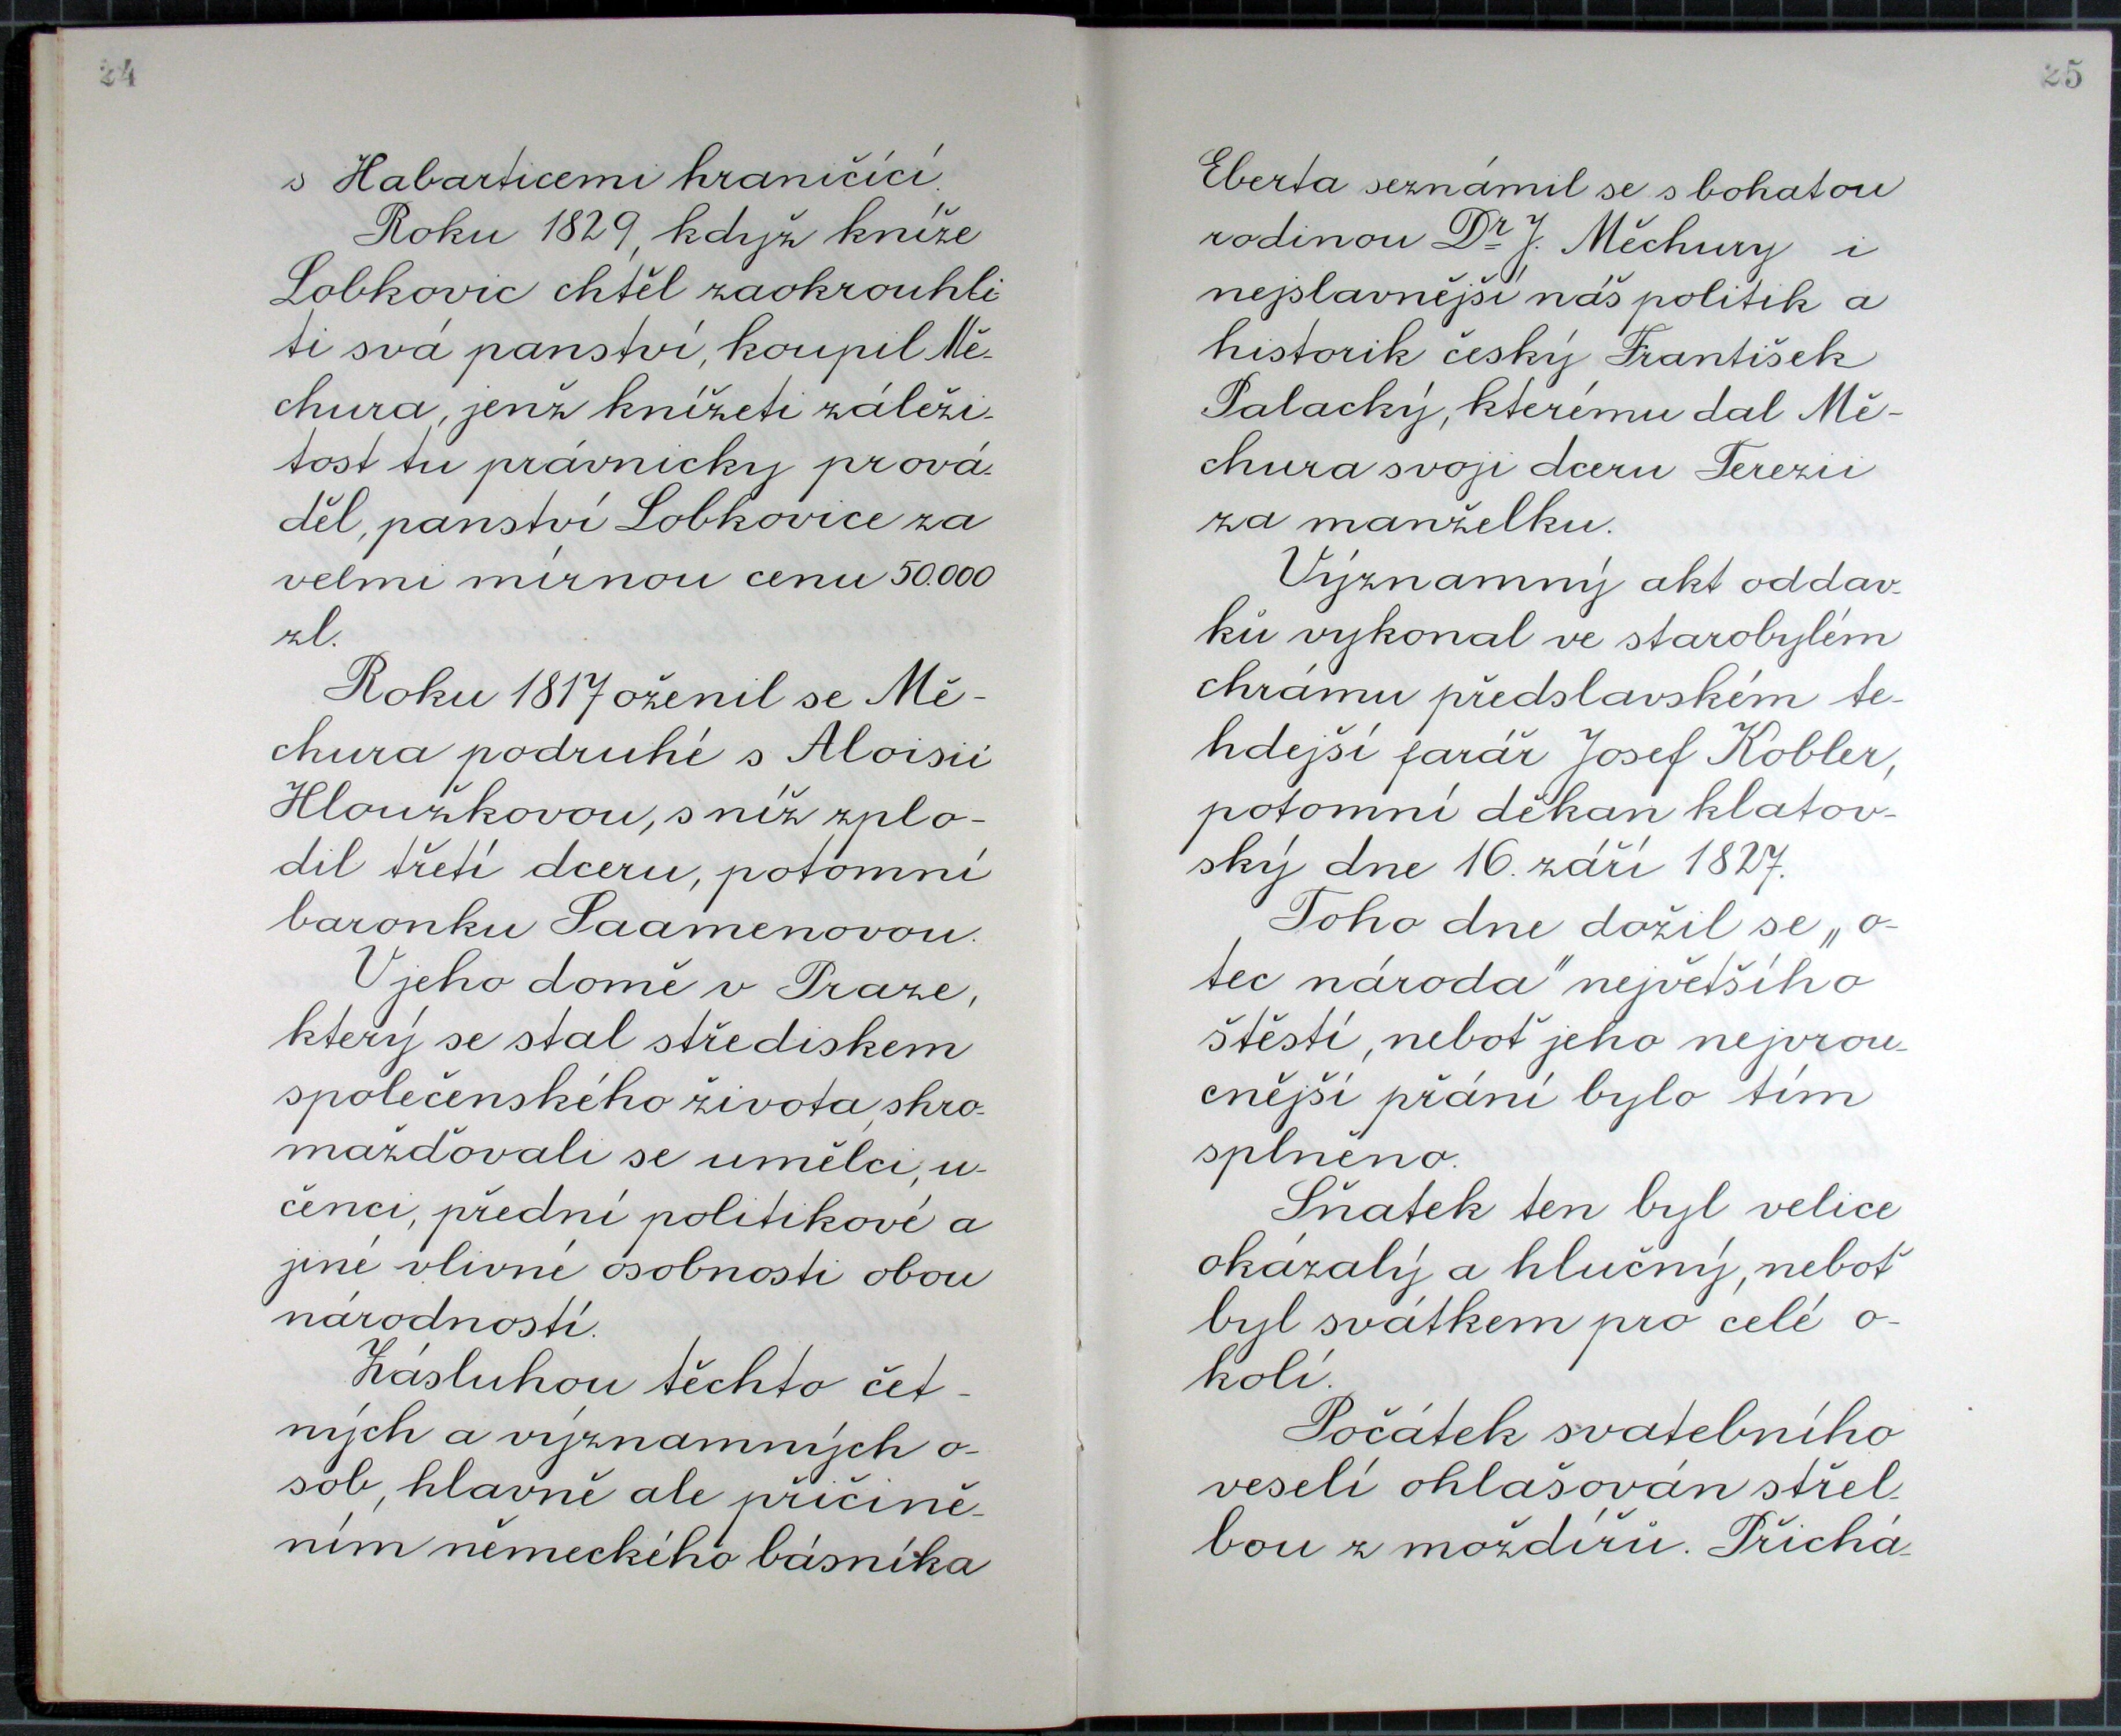 24
s Habarticemi hraničící.
Roku 1829, když kníže
Lobkovic chtěl zaokrouhli
ti svá panství, koupil Mě-
chura, jenž knížeti záleži-
tost tu právnicky prová-
děl, panství Lobkovice za
velmi mírnou cenu 50.000
zl.
Roku 1817 oženil se Mě-
chura podruhé s Aloisií
Hloužkovou, s níž zplo-
dil třetí dceru, potomní
baronku Saamenovou.
V jeho domě v Praze,
který se stal střediskem
společenského života, shro-
mažďovali se umělci, u-
čenci, přední politikové a
jiné vlivné osobnosti obou
národností.
Zásluhou těchto čet-
ných a významných o-
sob, hlavně ale přičině-
ním německého básníka
25
Eberta seznámil se s bohatou
rodinou Dr J. Měchury i
nejslavnější náš politik a
historik český František
Palacký, kterému dal Mě-
chura svoji dceru Terezii
za manželku.
Významný akt oddav-
ků vykonal ve starobylém
chrámu předslavském te-
hdejší farář Josef Kobler,
potomní děkan klatov-
ský dne 16. září 1827.
Toho dne dožil se „o-
tec národa" největšího
štěstí, neboť jeho nejvrou-
cnější přání bylo tím
splněno.
Sňatek ten byl velice
okázalý a hlučný, neboť
byl svátkem pro celé o-
kolí.
Počátek svatebního
veselí ohlašován střel-
bou z moždířů. Přichá-